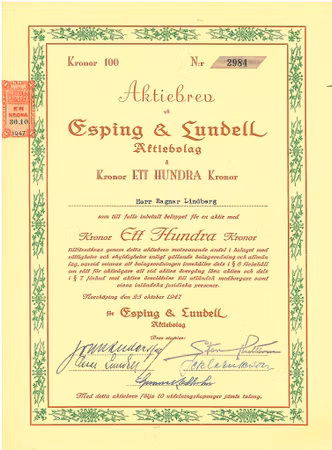 Kronor 100 N:r 2984
Aktiebrev
på
Esping & Lundell
Aktiebolag
å
Kronor ETT HUNDRA Kronor
Herr Ragnar Lindberg
som till fullo inbetalt beloppet för en aktie med
Kronor Ett Hundra Kronor
tillförsäkras genom detta aktiebrev motsvarande andel i bolaget med
rättigheter och skyldigheter enligt gällande bolagsordning och allmän
lag, varvid erinras att bolagsordningen innehåller dels i § 5 förbehåll
om rätt för aktieägare att vid akties övergång lösa aktien och dels
i § 7 förbud mot akties överlåtelse till utländsk medborgare samt
vissa inländska juridiska personer.
Norrköping den 25 oktober 1947
för Esping & Lundell
Aktiebolag
Dess styrelse:
Lundell
Med detta aktiebrev följa 10 utdelningskuponger jämte talong.
EN
KRONA
30.10
1947